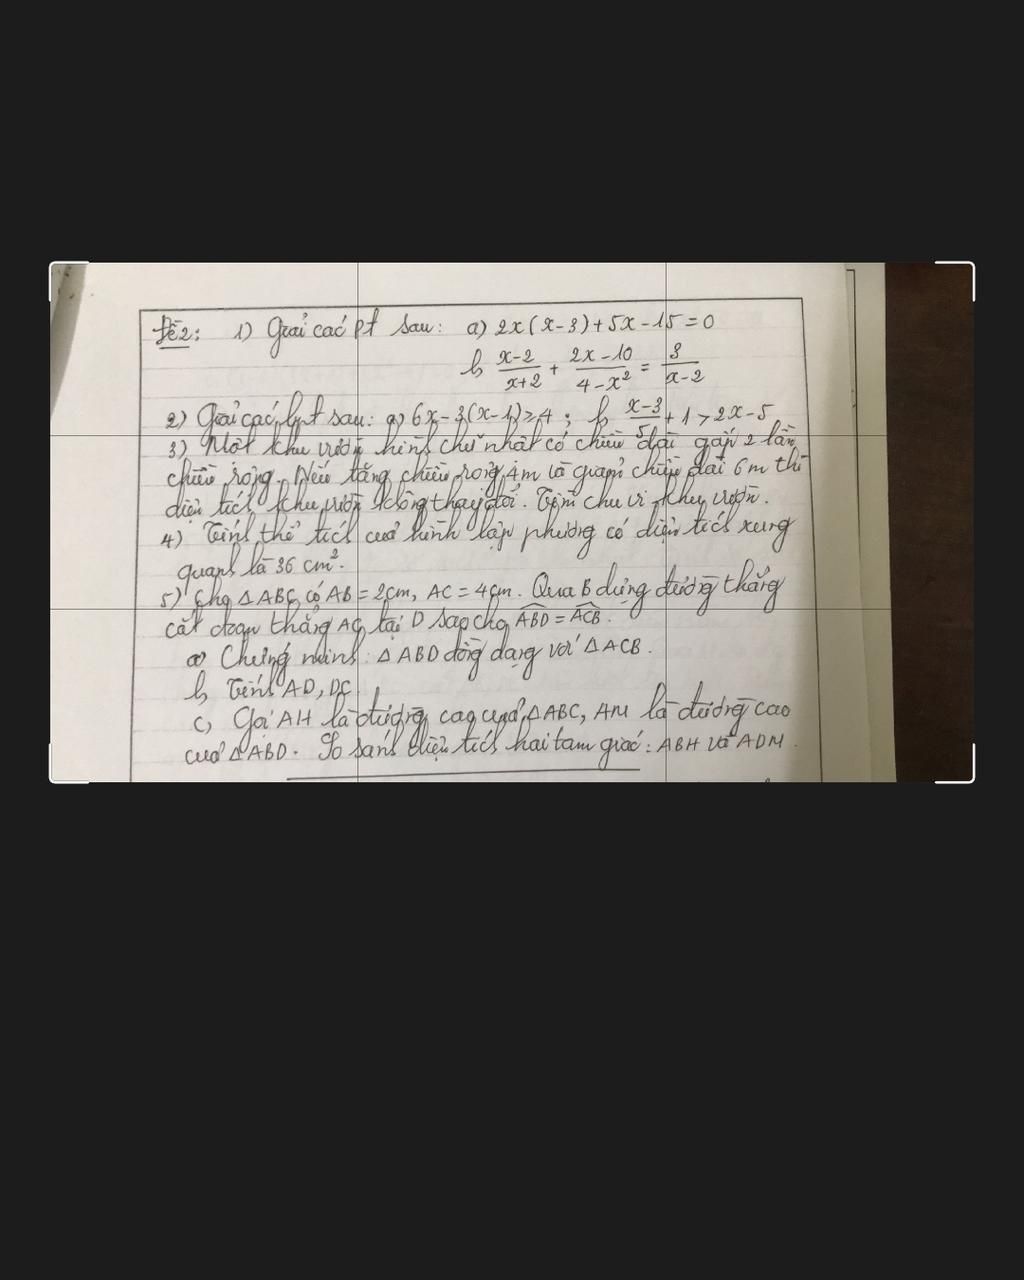 Đề 2: 1) Giải các pt sau: a) 2x(x-3)+5x-15=0
b, \frac{x-2}{x+2} + \frac{2x-10}{4-x^2} = \frac{3}{x-2}
2) Giải các bpt sau: a) 6x-3(x-1)≥4; b, \frac{x-3}{5}+1>2x-5
3) Một khu vườn hình chữ nhật có chiều dài gấp 2 lần
chiều rộng. Nếu tăng chiều rộng 4m và giảm chiều dài 6m thì
diện tích khu vườn không thay đổi. Tìm chu vi khu vườn.
4) Tính thể tích của hình lập phương có diện tích xung
quanh là 36 cm².
5) Cho △ABC có AB=2cm, AC=4cm. Qua B dựng đường thẳng
cắt đoạn thẳng AC tại D sao cho \widehat{ABD}=\widehat{ACB}.
a) Chứng minh: △ABD đồng dạng với △ACB.
b, Tính AD, DC.
c, Gọi AH là đường cao của △ABC, AM là đường cao
của △ABD. So sánh diện tích hai tam giác: ABH và ADM.